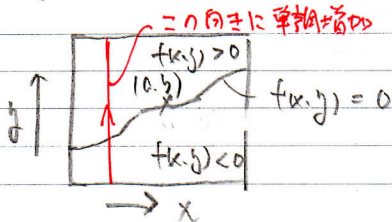 この向きに単調増加
f(x,y)>0
(a,b)
f(x,y)=0
y
f(x,y)<0
x